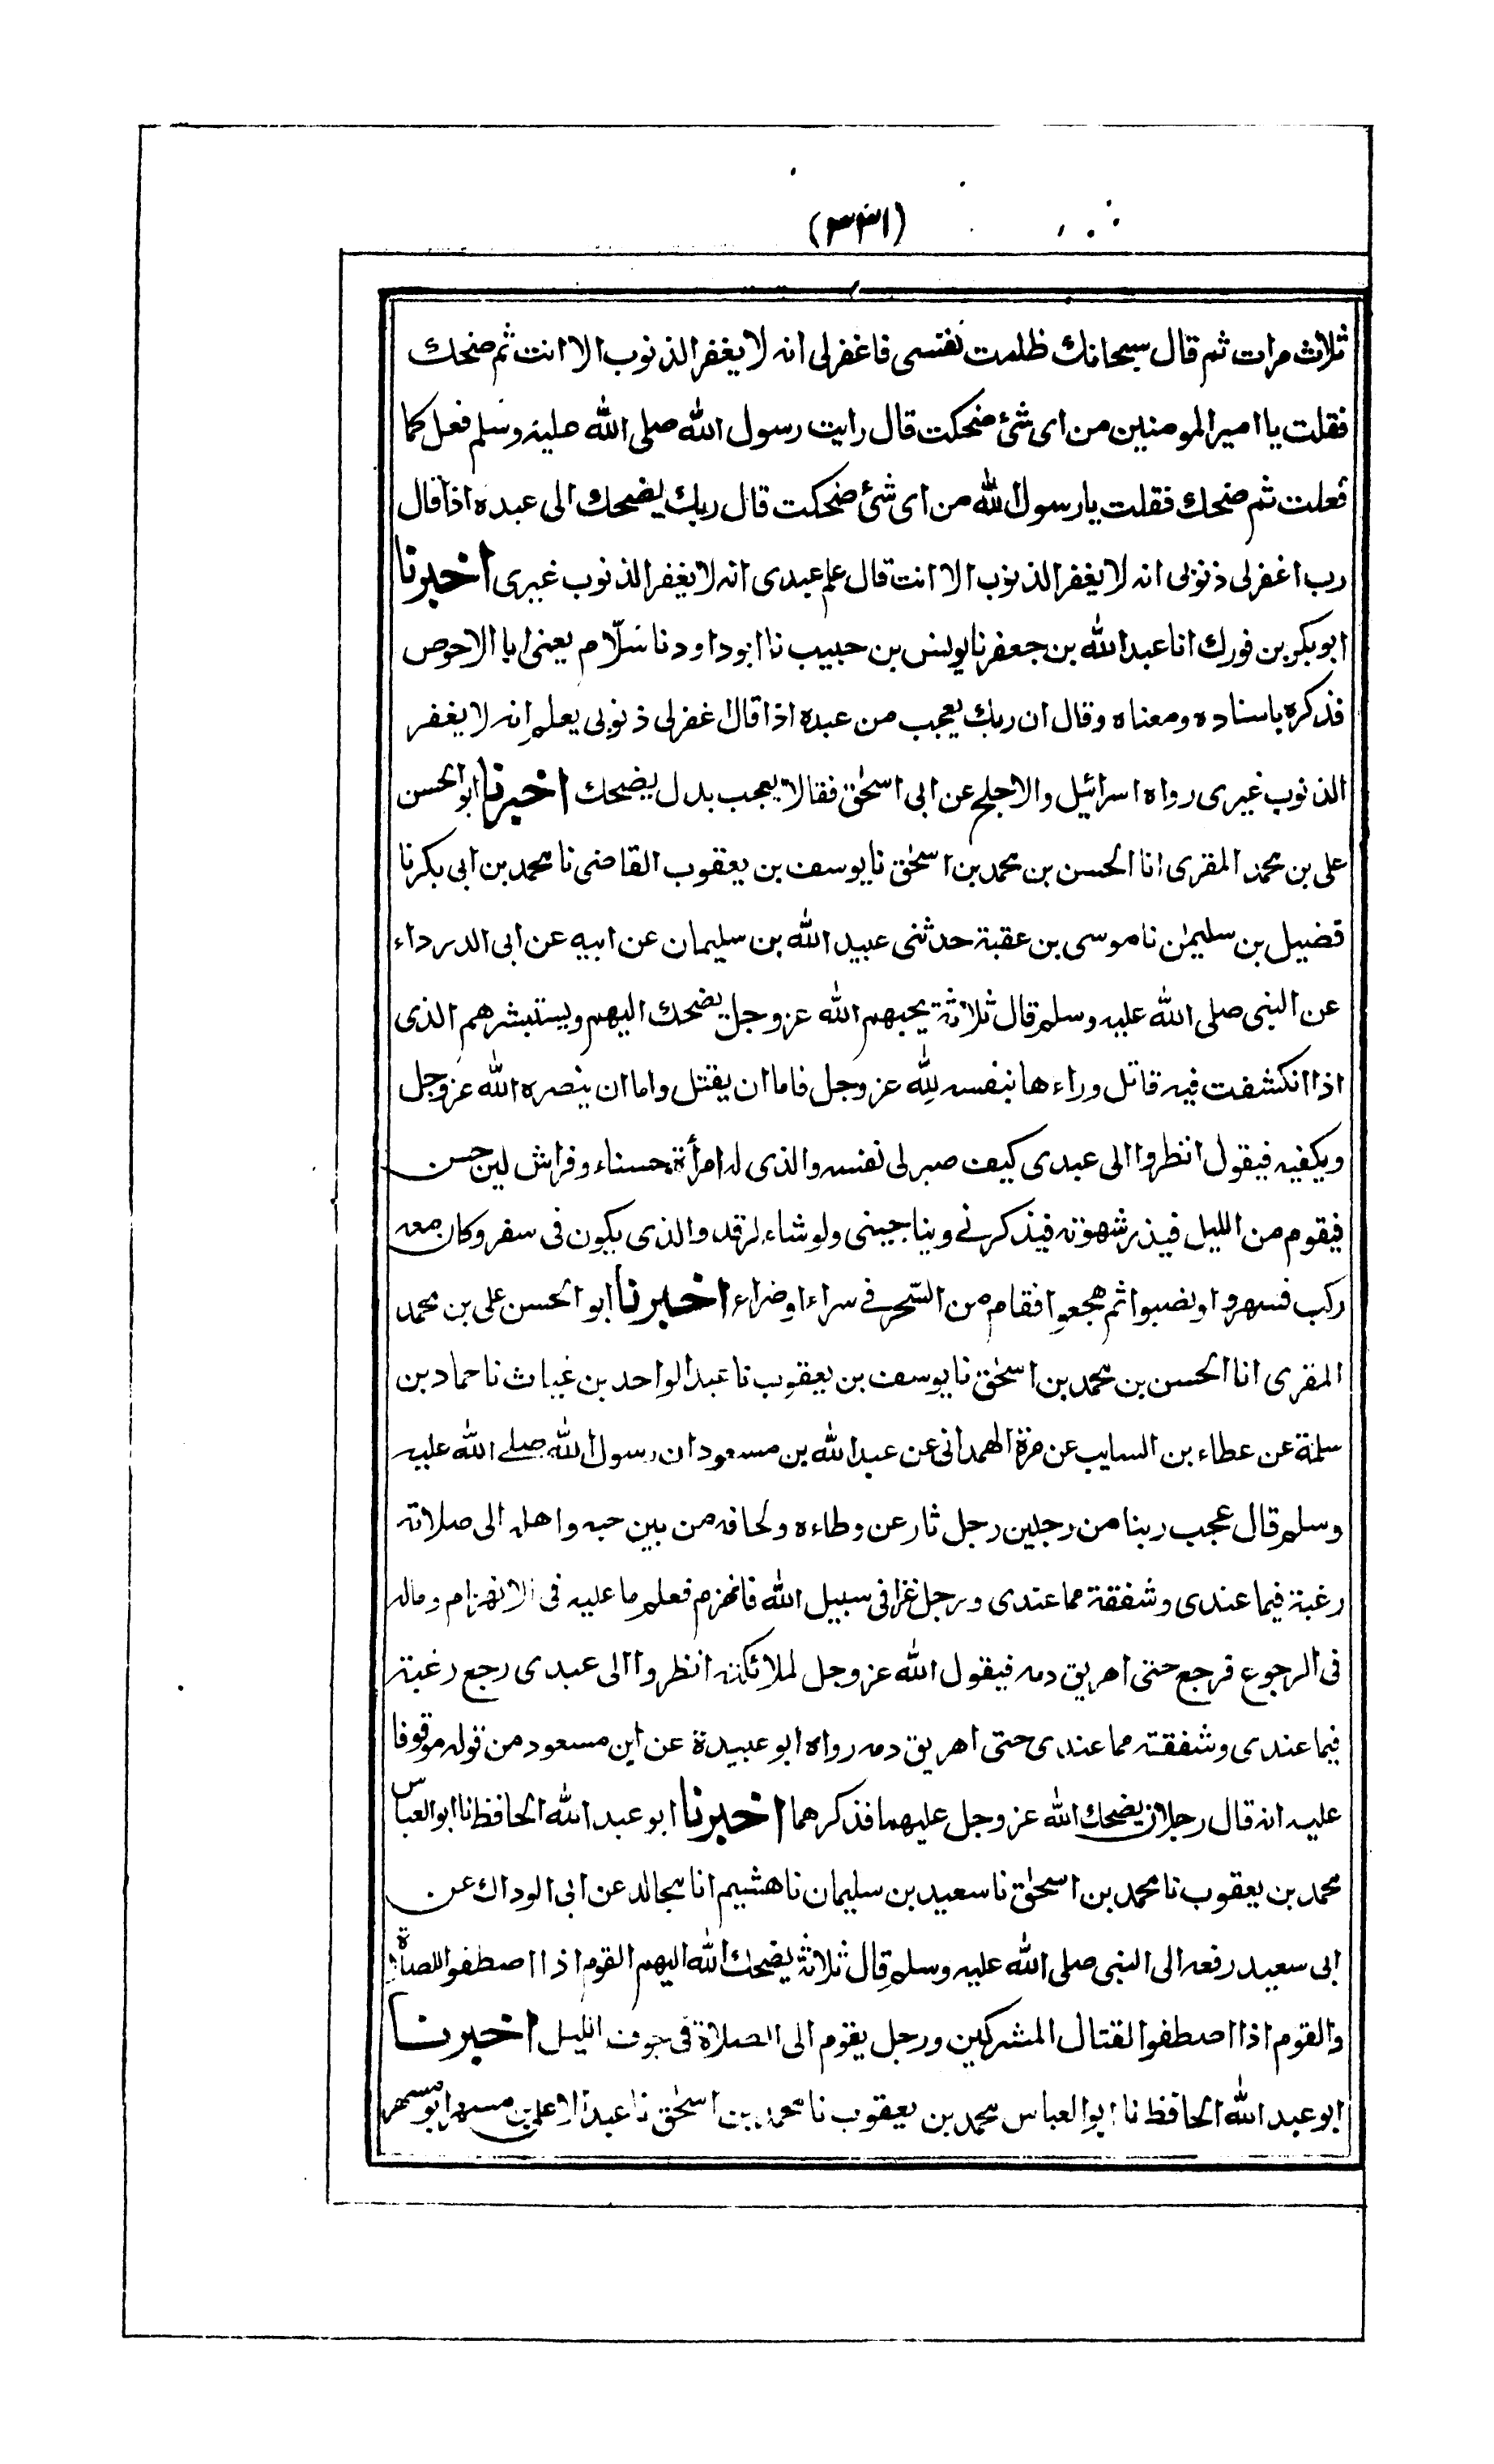 (٣٣١)
ثلاث مرات ثم قال سبحانك ظلمت نفسى فاغفرلى انه لا يغفر الذنوب الا انت ثم ضحك
فقلت يا امير المومنين من اى شئ ضحكت قال رايت رسول الله صلى الله عليه وسلم فعل كما
فعلت ثم ضحك فقلت يا رسول الله من اى شئ ضحكت قال ربك يضحك الى عبده اذا قال
رب اغفرلى ذنوبى انه لا يغفر الذنوب الا انت قال علم عبدى انه لا يغفر الذنوب غيرى اخبرنا
ابو بكر بن فورك انا عبد الله بن جعفر نا يونس بن حبيب نا ابو داود نا سلّام يعنى ابا الاحوص
فذكره باسناده ومعناه وقال ان ربك يعجب من عبده اذا قال اغفرلى ذنوبى يعلم انه لا يغفر
الذنوب غيرى رواه اسرائيل والاجلح عن ابى اسحٰق فقالا يعجب بدل يضحك اخبرنا ابو الحسن
على بن محمد المقرى انا الحسن بن محمد بن اسحٰق نا يوسف بن يعقوب القاضى نا محمد بن ابى بكر نا
فضيل بن سليمٰن نا موسى بن عقبة حدثنى عبيد الله بن سليمان عن ابيه عن ابى الدرداء
عن النبى صلى الله عليه وسلم قال ثلاثة يحبهم الله عز وجل يضحك اليهم ويستبشرهم الذى
اذا انكشفت فيه قاتل وراءها بنفسه لله عز وجل فاما ان يقتل واما ان ينصره الله عز وجل
ويكفيه فيقول انظروا الى عبدى كيف صبر لى نفسه والذى له امرأة حسناء وفراش لين حسن
فيقوم من الليل فيذر شهوته فيذكرنے ويناجينى ولو شاء لرقد والذى يكون فى سفر وكان معه
ركب فسهروا ونصبوا ثم هجعوا فقام من السّحر فے سراء او ضراء اخبرنا ابو الحسن على بن محمد
المقرى انا الحسن بن محمد بن اسحٰق نا يوسف بن يعقوب نا عبد الواحد بن غياث نا حماد بن
سلمة عن عطاء بن السايب عن مرة الهمدانى عن عبد الله بن مسعود ان رسول الله صلے الله عليه
وسلم قال عجب ربنا من رجلين رجل ثار عن وطاءه ولحافه من بين حبه واهله الى صلاته
رغبة فيما عندى وشفقة مما عندى ورجل غزا فى سبيل الله فانهزم فعلم ما عليه فى الانهزام وماله
فى الرجوع فرجع حتى اهريق دمه فيقول الله عز وجل لملائكته انظروا الى عبدى رجع رغبة
فيما عندى وشفقته مما عندى حتى اهريق دمه رواه ابو عبيدة عن ابن مسعود من قوله موقوفا
عليه انه قال رجلان يضحك الله عز وجل عليهما فذكرهما اخبرنا ابو عبد الله الحافظ نا ابو العباس
محمد بن يعقوب نا محمد بن اسحٰق نا سعيد بن سليمان نا هشيم انا مجالد عن ابى الوداك عن
ابى سعيد رفعه الى النبى صلى الله عليه وسلم قال ثلاثة يضحك الله اليهم القوم اذا اصطفوا للصلٰوة
والقوم اذا اصطفوا لقتال المشركين ورجل يقوم الى الصلاة فى جوف الليل اخبرنا
ابو عبد الله الحافظ نا ابو العباس محمد بن يعقوب نا محمد بن اسحٰق نا عبد الاعلى بن مسهر ابو مسهر